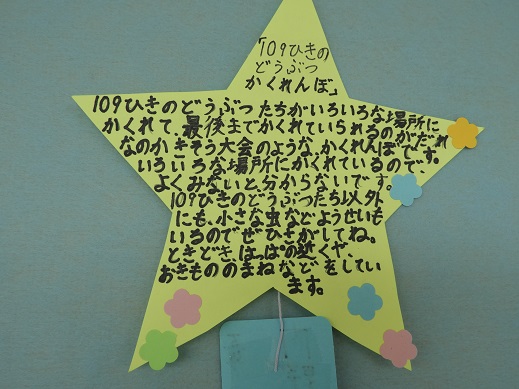 「109ひきの
どうぶつ
かくれんぼ」
109ひきのどうぶつたちがいろいろな場所に
かくれて、最後までかくれていられるのがだれ
なのかきそう大会のような、かくれんぼです。
いろいろな場所にかくれているので、
よくみないと分からないです。
109ひきのどうぶつたち以外
にも、小さな虫などようせいも
いるのでぜひさがしてね。
ときどき、はっぱの近くや、
おきもののまねなどをしてい
ます。